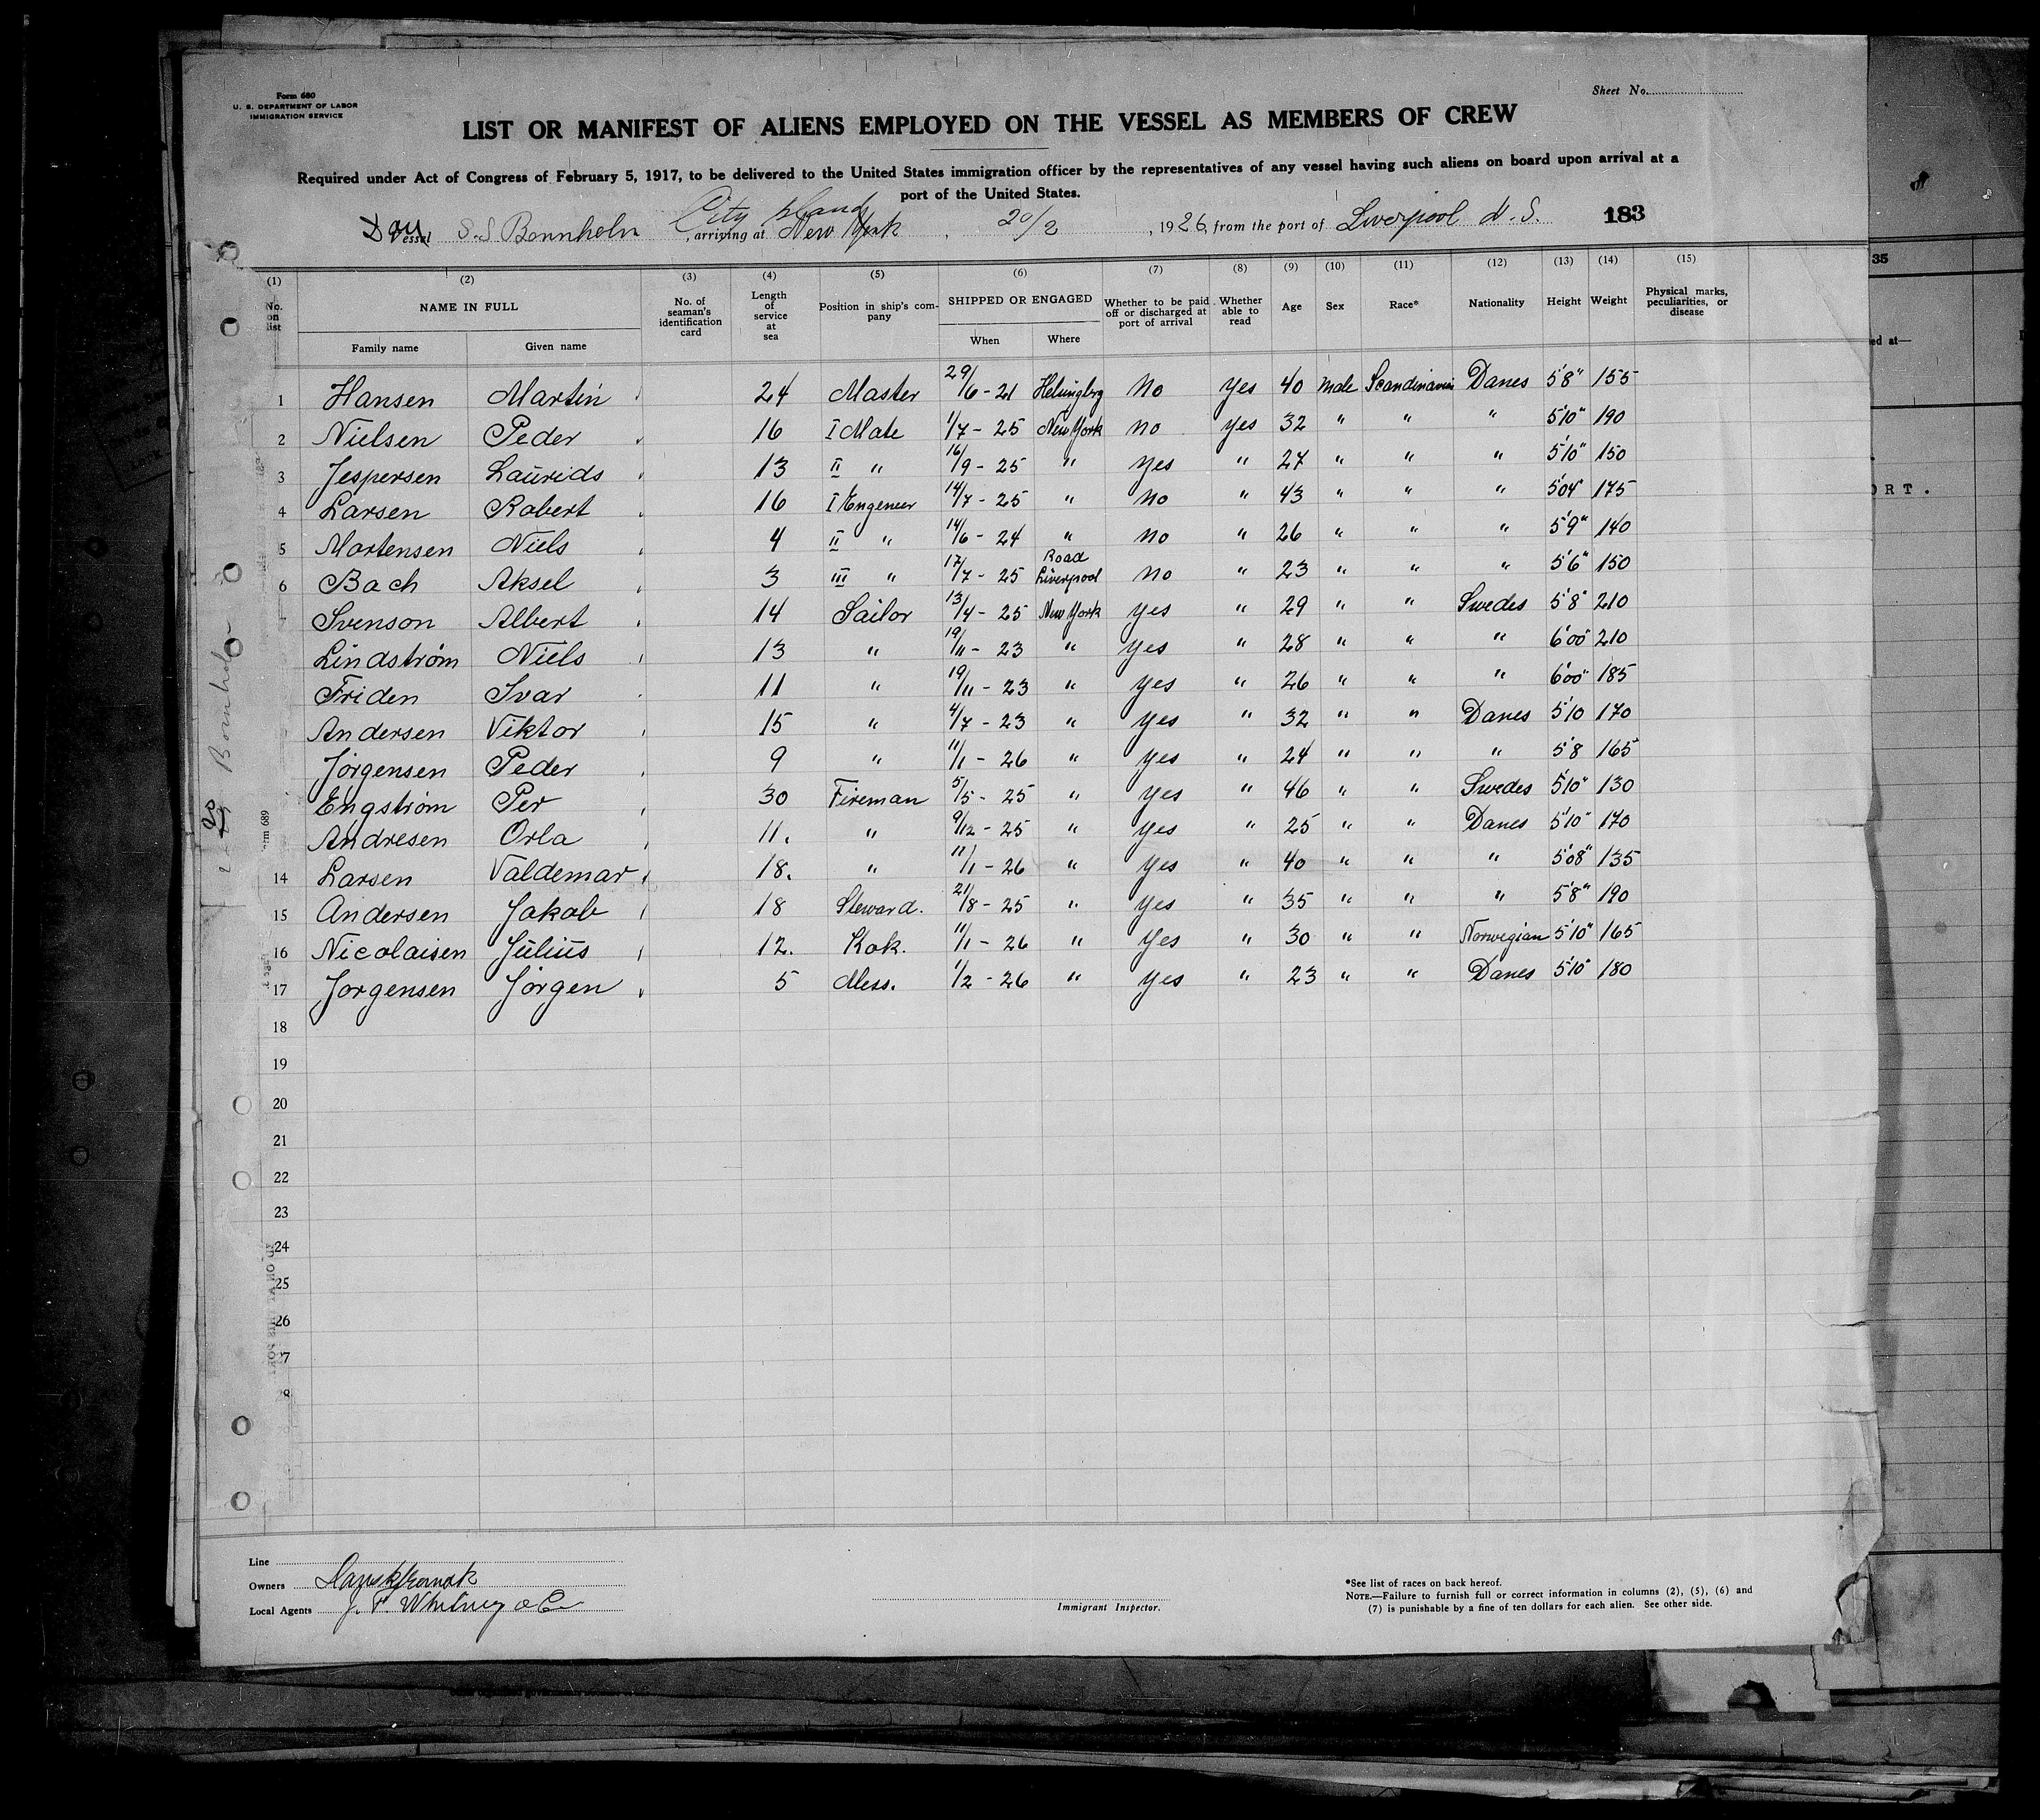 Form 680
U. S. DEPARTMENT OF LABOR
IMMIGRATION SERVICE
Sheet No.
LIST OR MANIFEST OF ALIENS EMPLOYED ON THE VESSEL AS MEMBERS OF CREW
Required under Act of Congress of February 5, 1917, to be delivered to the United States immigration officer by the representatives of any vessel having such aliens on board upon arrival at a
port of the United States.
City Island
Vessel S.S Bornholm , arriving at New York , 20/2 , 1926, from the port of Liverpool N.S. 183
(1) (2) (3) (4) (5) (6) (7) (8) (9) (10) (11) (12) (13) (14) (15) 35
No. on list NAME IN FULL Family name Given name No. of seaman's identification card Length of service at sea Position in ship's company SHIPPED OR ENGAGED When Where Whether to be paid off or discharged at port of arrival Whether able to read Age Sex Race* Nationality Height Weight Physical marks, peculiarities, or disease ed at—
1 Hansen Martin 24 Master 29/6 - 21 Helsingborg No Yes 40 Male Scandinavia Danes 5'8" 155
2 Nielsen Peder 16 I Mate 1/7 - 25 New York no yes 32 " " " 5'10" 190
3 Jespersen Laurids 13 II " 16/9 - 25 " yes " 27 " " " 5'10" 150
4 Larsen Robert 16 I Engeneer 14/7 - 25 " no " 43 " " " 5'04" 175
5 Mortensen Niels 4 II " 14/6 - 24 " no " 26 " " " 5'9" 140
6 Bach Aksel 3 III " 17/7 - 25 Road Liverpool no " 23 " " " 5'6" 150
7 Svenson Albert 14 Sailor 13/4 - 25 New York yes " 29 " " Swedes 5'8" 210
Lindstrøm Niels 13 " 19/11 - 23 " yes " 28 " " " 6'00" 210
Friden Ivar 11 " 19/11 - 23 " yes " 26 " " " 6'00" 185
Andersen Viktor 15 " 4/7 - 23 " yes " 32 " " Danes 5'10 170
Jørgensen Peder 9 " 11/1 - 26 " yes " 24 " " " 5'8 165
Engstrøm Per 30 Fireman 5/5 - 25 " yes " 46 " " Swedes 5'10" 130
Andresen Orla 11. " 9/12 - 25 " yes " 25 " " Danes 5'10" 170
14 Larsen Valdemar 18. " 11/1 - 26 " yes " 40 " " " 5'08" 135
15 Andersen Jakob 18 Steward. 21/8 - 25 " yes " 35 " " " 5'8" 190
16 Nicolaisen Julius 12. Kok. 11/1 - 26 " yes " 30 " " Norwegian 5'10" 165
17 Jorgensen Jørgen 5 Mess. 1/2 - 26 " yes " 23 " " Danes 5'10" 180
18
19
20
21
22
23
24
25
26
27
28
Bornholm
rm 689
ORT.
Line
Owners
Local Agents J. F. Whitney & Co
Immigrant Inspector.
*See list of races on back hereof.
NOTE.—Failure to furnish full or correct information in columns (2), (5), (6) and
(7) is punishable by a fine of ten dollars for each alien. See other side.